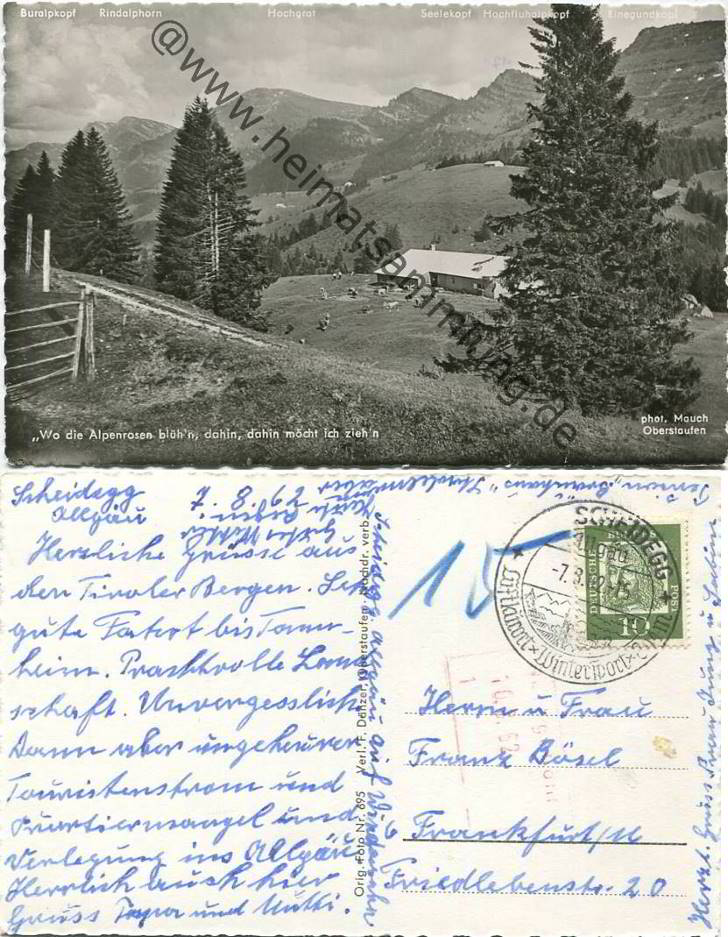 Buralpkopf Rindalphorn Hochgrat Seelekopf Hochfluhalpkopf Einegundkopf
@www.heimatsammlung.de
„Wo die Alpenrosen blöh'n, dahin, dahin möcht ich zieh'n
phot. Mauch
Oberstaufen
Scheidegg 7. 8. 62
Allgäu
Herzliche Grüsse aus
den Tiroler Bergen. Sehr
gute Fahrt bis Tann-
heim. Prachtvolle Land
schaft. Unvergesslich
Dann aber ungeheurer
Touristenstrom und
Quartiermangel und
Verlegung ins Allgäu
Herrlich auch hier
Gruss Papa und Mutti.
Orig. Foto Nr. 695 Verl. F. Danzer, Oberstaufen Nachdr. verb.
15
SCHEIDEGG
Allgäu
-7.8.62-15
Luftkurort * Wintersport
DEUTSCHE BUNDESPOST
10
Herrn u Frau
Franz Bösel
6 Frankfurt/M
Friedlebenstr. 20